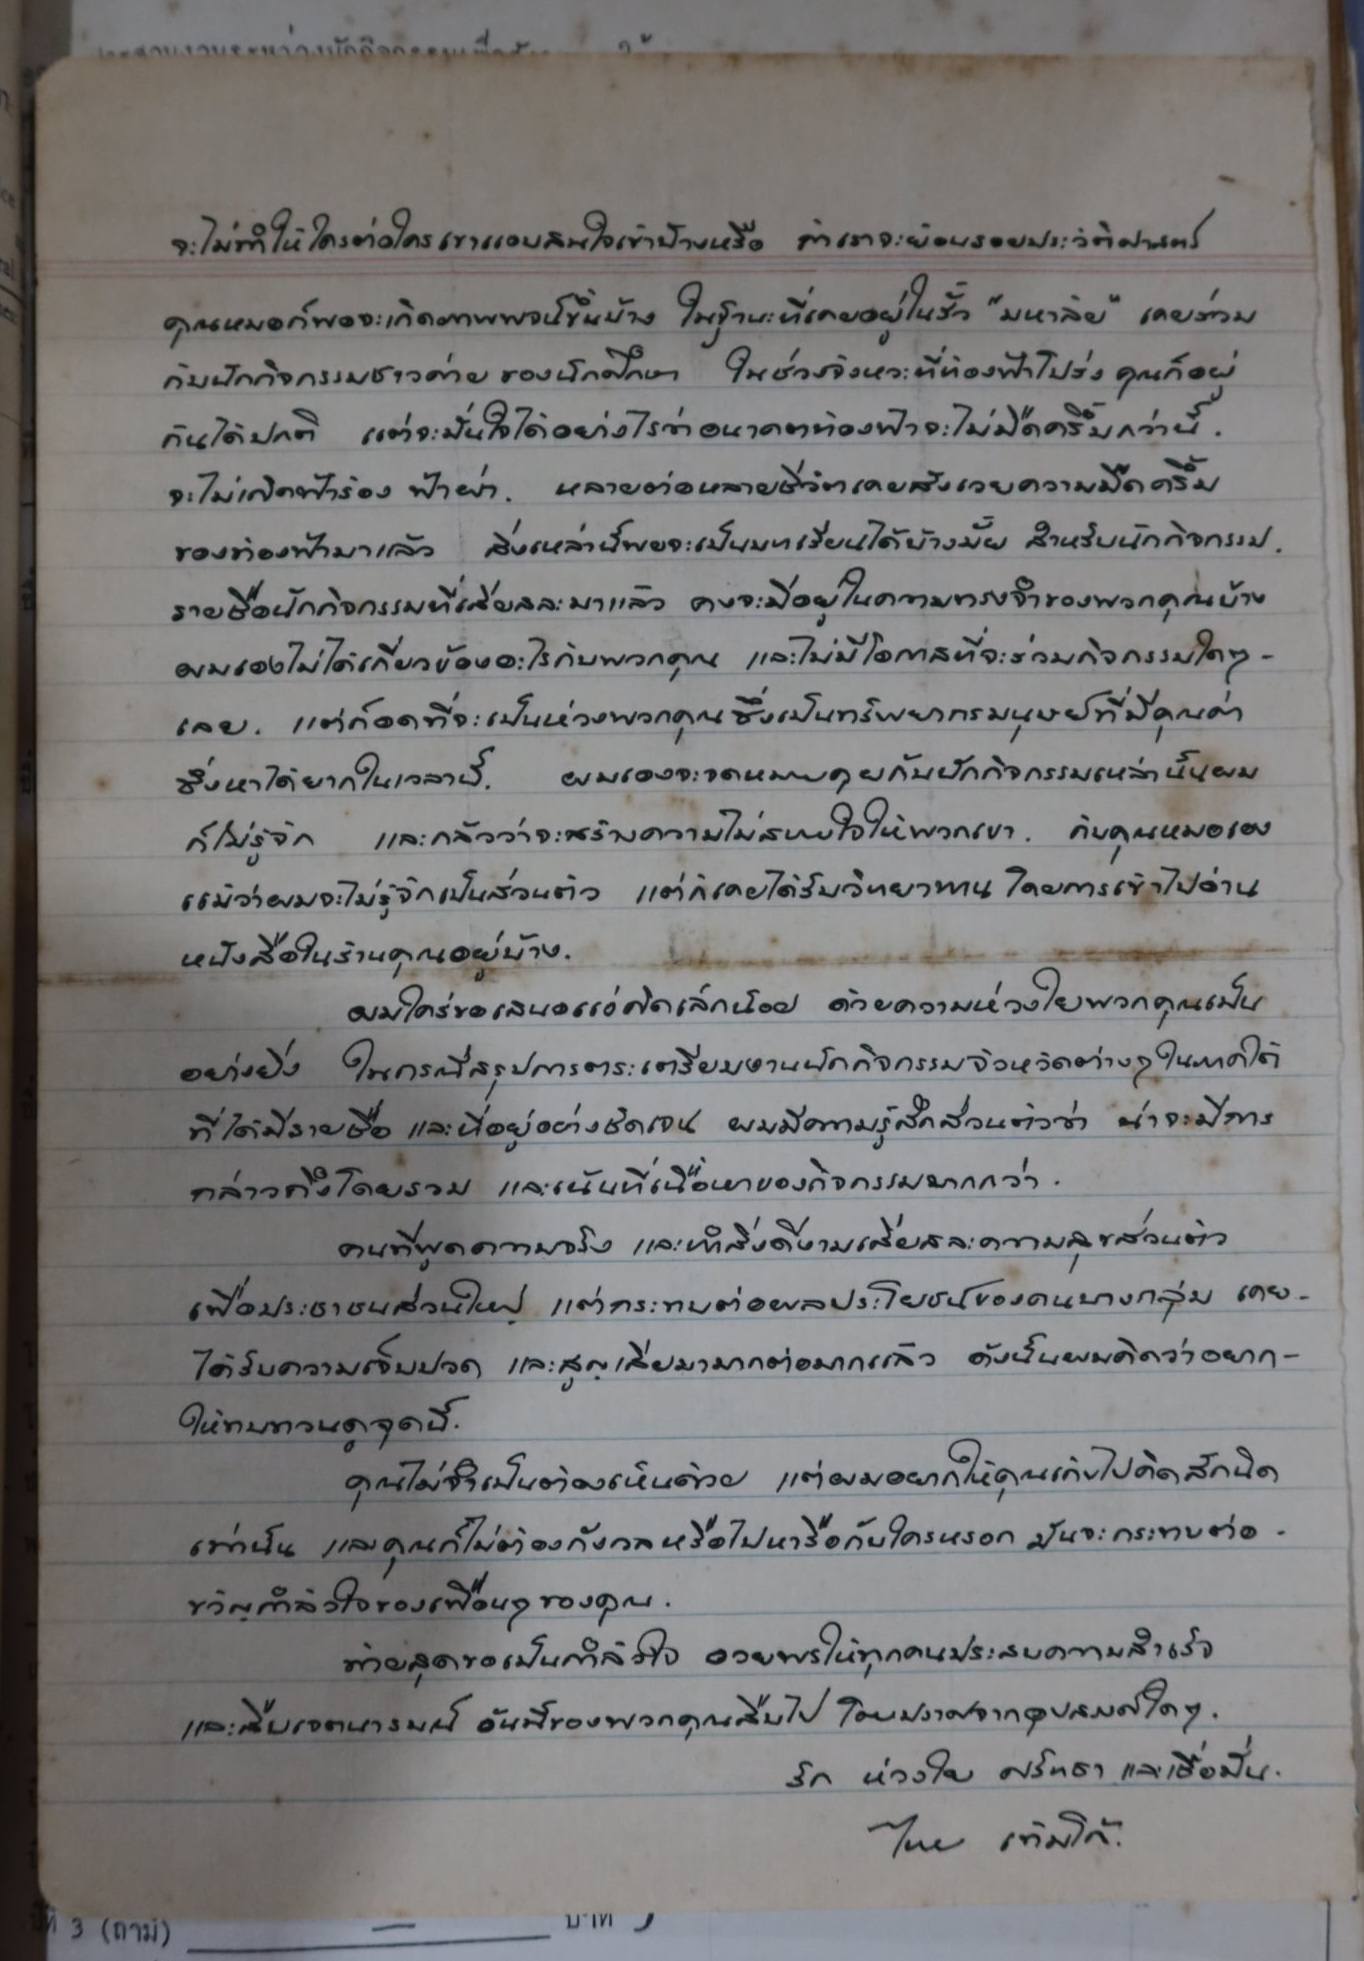 จะไม่ทำให้ใครต่อใครเขาแอบสนใจเข้าบ้างหรือ ถ้าเราจะย้อนรอยประวัติศาสตร์
คุณหมอก็พอจะเกิดภาพพจน์ขึ้นบ้าง ในฐานะที่เคยอยู่ในรั้ว "มหาลัย" เคยร่วม
กับนักกิจกรรมชาวค่าย ของนักศึกษา ในช่วงจังหวะที่ท้องฟ้าโปร่ง คุณก็อยู่
กันได้ปกติ แต่จะมั่นใจได้อย่างไรว่าอนาคตท้องฟ้าจะไม่มืดครึ้มกว่านี้.
จะไม่เกิดฟ้าร้อง ฟ้าผ่า. หลายต่อหลายชีวิตเคยสังเวยความมืดครึ้ม
ของท้องฟ้ามาแล้ว สิ่งเหล่านี้พอจะเป็นบทเรียนได้บ้างมั้ย สำหรับนักกิจกรรม.
รายชื่อนักกิจกรรมที่เสียสละมาแล้ว คงจะมีอยู่ในความทรงจำของพวกคุณบ้าง
ผมเองไม่ได้เกี่ยวข้องอะไรกับพวกคุณ และไม่มีโอกาสที่จะร่วมกิจกรรมใดๆ -
เลย. แต่ก็อดที่จะเป็นห่วงพวกคุณ ซึ่งเป็นทรัพยากรมนุษย์ที่มีคุณค่า
ซึ่งหาได้ยากในเวลานี้. ผมเองจะจดหมายคุยกับนักกิจกรรมเหล่านั้นผม
ก็ไม่รู้จัก และกลัวว่าจะสร้างความไม่สบายใจให้พวกเขา. กับคุณหมอเอง
แม้ว่าผมจะไม่รู้จักเป็นส่วนตัว แต่ก็เคยได้รับวิทยาทาน โดยการเข้าไปอ่าน
หนังสือในร้านคุณอยู่บ้าง.
ผมใคร่ขอเสนอแง่คิดเล็กน้อย ด้วยความห่วงใยพวกคุณเป็น
อย่างยิ่ง ในกรณีสรุปการตระเตรียมงานนักกิจกรรมจังหวัดต่างๆ ในภาคใต้
ที่ได้มีรายชื่อ และที่อยู่อย่างชัดเจน ผมมีความรู้สึกส่วนตัวว่า น่าจะมีการ
กล่าวถึงโดยรวม และเน้นที่เนื้อหาของกิจกรรมมากกว่า.
คนที่พูดความจริง และทำสิ่งดีงามเสียสละความสุขส่วนตัว
เพื่อประชาชนส่วนใหญ่ แต่กระทบต่อผลประโยชน์ของคนบางกลุ่ม เคย-
ได้รับความเจ็บปวด และสูญเสียมามากต่อมากแล้ว ดังนั้นผมคิดว่าอยาก-
ให้ทบทวนดูจุดนี้.
คุณไม่จำเป็นต้องเห็นด้วย แต่ผมอยากให้คุณเก็บไปคิดสักนิด
เท่านั้น และคุณก็ไม่ต้องกังวลหรือไปหารือกับใครหรอก มันจะกระทบต่อ -
ขวัญกำลังใจของเพื่อนๆ ของคุณ.
ท้ายสุดขอเป็นกำลังใจ อวยพรให้ทุกคนประสบความสำเร็จ
และสืบเจตนารมณ์ อันนี้ของพวกคุณสืบไป โดยปราศจากอุปสรรคใดๆ.
รัก ห่วงใย ศรัทธา และเชื่อมั่น.
3 (ถามี) บาท